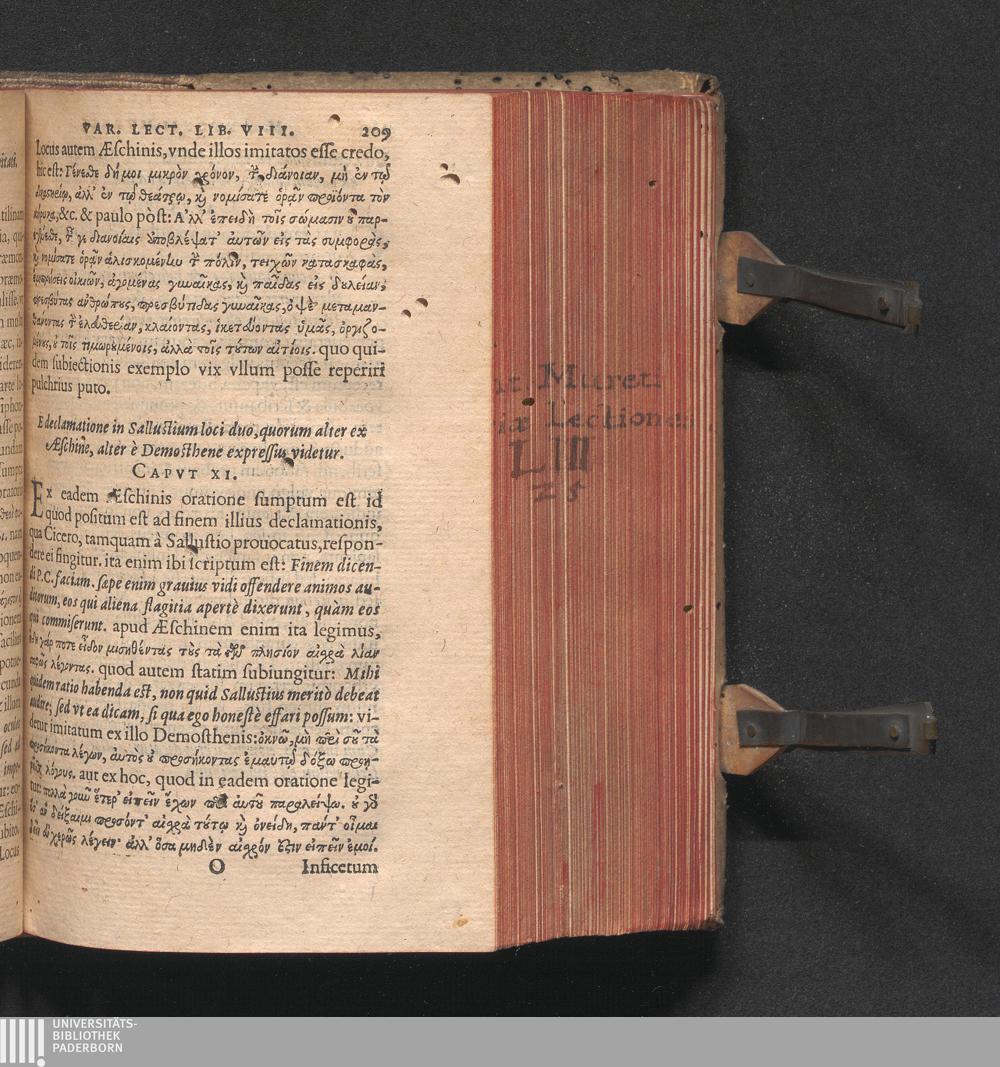 VAR. LECT. LIB. VIII. 209
Locus autem Æschinis, vnde illos imitatos esse credo,
hic est: Γένεσθε δή μοι μικρὸν χρόνον, τ̀ διάνοιαν, μὴ ἐν τῷ
δικαστηρίῳ, ἀλλ' ἐν τῷ θεάτρῳ, καὶ νομίσατε ὁρᾶν προϊόντα τὸν
κήρυκα, &c. & paulo pòst: Ἀλλ' ἐπειδὴ τοῖς σώμασιν οὐ παρ-
εγένεσθε, τ̀ γε διανοίαις ἀποβλέψατ' αὐτῶν εἰς τὰς συμφορὰς,
καὶ νομίσατε ὁρᾶν ἁλισκομένην τ̀ πόλιν, τειχῶν κατασκαφὰς,
ἐμπρήσεις οἰκιῶν, ἀγομένας γυναῖκας, καὶ παῖδας εἰς δουλείαν,
πρεσβύτας ἀνθρώπους, πρεσβύτιδας γυναῖκας, ὀψὲ μεταμαν-
θάνοντας τ̀ ἐλευθερίαν, κλαίοντας, ἱκετεύοντας ὑμᾶς, ὀργιζο-
μένους, οὐ τοῖς τιμωρουμένοις, ἀλλὰ τοῖς τούτων αἰτίοις. quo qui-
dem subiectionis exemplo vix vllum posse reperiri
pulchrius puto.
E declamatione in Sallustium loci duo, quorum alter ex
Æschine, alter è Demosthene expressus videtur.
CAPVT XI.
Ex eadem Æschinis oratione sumptum est id
quod positum est ad finem illius declamationis,
qua Cicero, tamquam à Sallustio prouocatus, respon-
dere ei fingitur. ita enim ibi scriptum est: Finem dicen-
di P.C. faciam. sæpe enim grauius vidi offendere animos au-
ditorum, eos qui aliena flagitia apertè dixerunt, quàm eos
qui commiserunt. apud Æschinem enim ita legimus,
ἤδη γάρ ποτε εἶδον μισηθέντας τοὺς τὰ τῶν πλησίον αἰσχρὰ λίαν
σαφῶς λέγοντας. quod autem statim subiungitur: Mihi
quidem ratio habenda est, non quid Sallustius meritò debeat
audire; sed vt ea dicam, si qua ego honestè effari possum: vi-
detur imitatum ex illo Demosthenis: ὀκνῶ, μὴ περὶ σοῦ τὰ
προσήκοντα λέγων, αὐτὸς οὐ προσήκοντας ἐμαυτῷ δόξω προῃ-
ρῆσθαι λόγους. aut ex hoc, quod in eadem oratione legi-
tur: πολλὰ τοίνυν ἕτερ' εἰπεῖν ἔχων περὶ αὐτοῦ παραλείψω. οὐ γὰρ
ὅσ' ἂν δείξαιμι προσόντ' αἰσχρὰ τούτῳ καὶ ὀνείδη, πάντ' οἶμαι
δεῖν εὐχερῶς λέγειν· ἀλλ' ὅσα μηδὲν αἰσχρόν ἐστιν εἰπεῖν ἐμοί.
O Inficetum
Mureti
Lectiones
LIII
25
UNIVERSITÄTS-
BIBLIOTHEK
PADERBORN